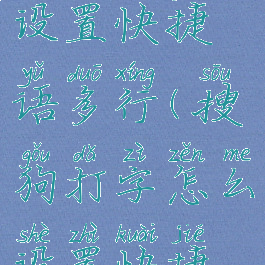 设置快捷
yǔ duō xíng sōu
语多行(搜
gǒu dǎ zì zěn me
狗打字怎么
shè zhì kuài jié
设置快捷